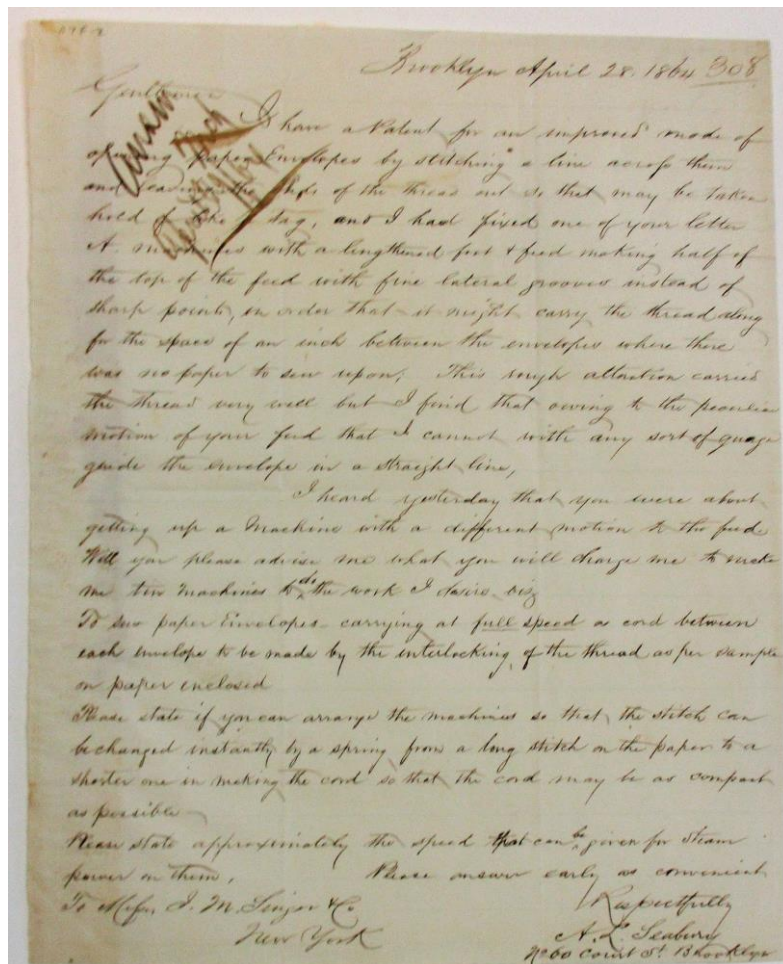 Brooklyn April 28. 1864 308
Gentlemen
I have a Patent for an improved mode of
opening paper Envelopes by stitching a line across them
and leaving the ends of the thread out so that may be taken
hold of like a tag, and I had fixed one of your letter
A. machines with a lengthened foot & feed making half of
the top of the feed with fine lateral grooves instead of
sharp points, in order that it might carry the thread along
for the space of an inch between the envelopes where there
was no paper to sew upon; This rough attaction carried
the thread very well but I find that owing to the peculiar
motion of your feed that I cannot with any sort of guage
guide the envelope in a straight line,
I heard yesterday that you were about
getting up a Machine with a different motion to the feed.
Will you please advise me what you will charge me to make
me ten Machines to do the work I desire viz
To sew paper Envelopes carrying at full speed a cord between
each envelope to be made by the interlocking of the thread as per sample
on paper enclosed
Please state if you can arrange the machines so that the stitch can
be changed instantly by a spring from a long stitch on the paper to a
shorter one in making the cord so that the cord may be as compact
as possible
Please state approximately the speed that can be given for Steam
power on them, Please answer early as convenient
To Messrs I. M. Singer & Co. Respectfully
New York A. L. Seabury
No 60 Court St. Brooklyn